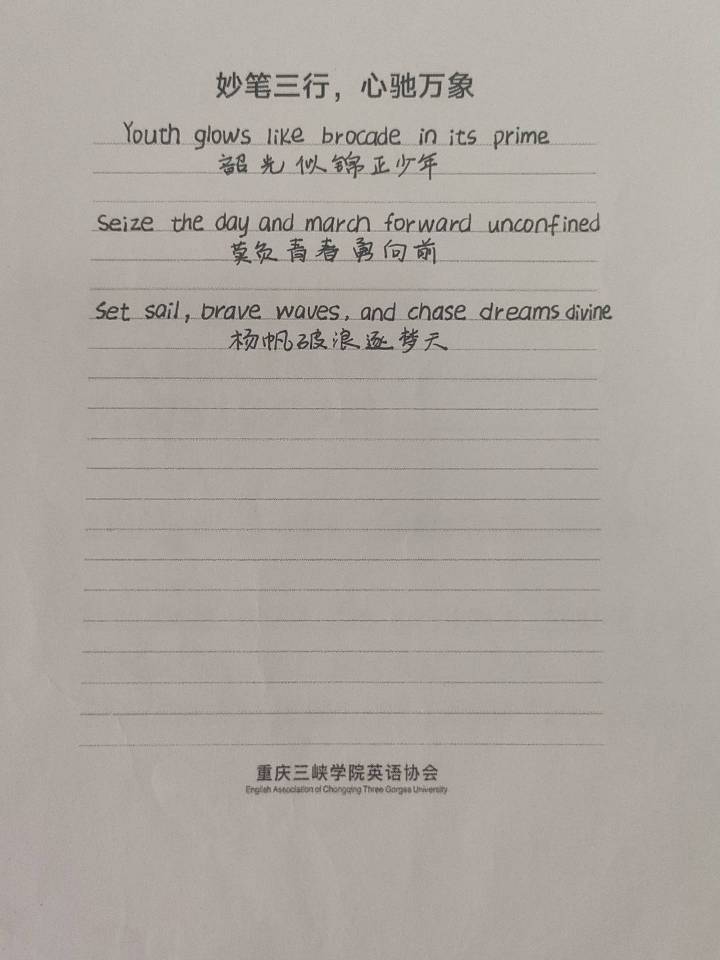 妙笔三行，心驰万象
Youth glows like brocade in its prime
韶光似锦正少年
Seize the day and march forward unconfined
莫负青春勇向前
Set sail, brave waves, and chase dreams divine
杨帆破浪逐梦天
重庆三峡学院英语协会
English Association of Chongqing Three Gorges University